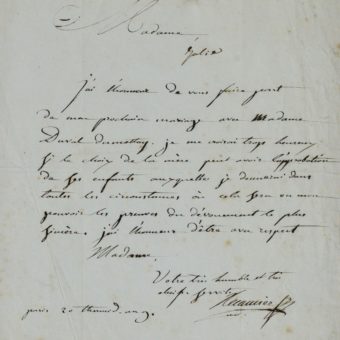 Madame
Julie
j'ai l'honneur de vous faire part
de mon prochain mariage avec Madame
Duval je me croirai trop heureux
si le choix de la mère peut avoir l'approbation
de ses enfants auxquelles je donnerai dans
toutes les circonstances où cela sera en mon
pouvoir les preuves du dévouement le plus
sincère. j'ai l'honneur d'être avec respect
Madame,
Votre très humble et très
paris 20 thermid. an 9.